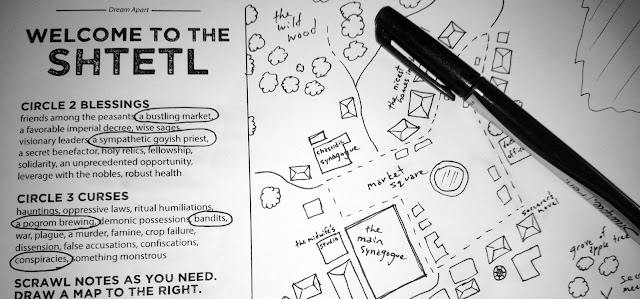 Dream Apart
WELCOME TO THE
SHTETL
CIRCLE 2 BLESSINGS
friends among the peasants, a bustling market,
a favorable imperial decree, wise sages,
visionary leaders, a sympathetic goyish priest,
a secret benefactor, holy relics, fellowship,
solidarity, an unprecedented opportunity,
leverage with the nobles, robust health
CIRCLE 3 CURSES
hauntings, oppressive laws, ritual humiliations,
a pogrom brewing, demonic possessions, bandits,
war, plague, a murder, famine, crop failure,
dissension, false accusations, confiscations,
conspiracies, something monstrous
SCRAWL NOTES AS YOU NEED.
DRAW A MAP TO THE RIGHT.
the
wild
wood
the nicest
chassidic
synagogue
market
square
the midwife's
studio
the
main
synagogue
sorcerer's
hovel
grove of
apple trees